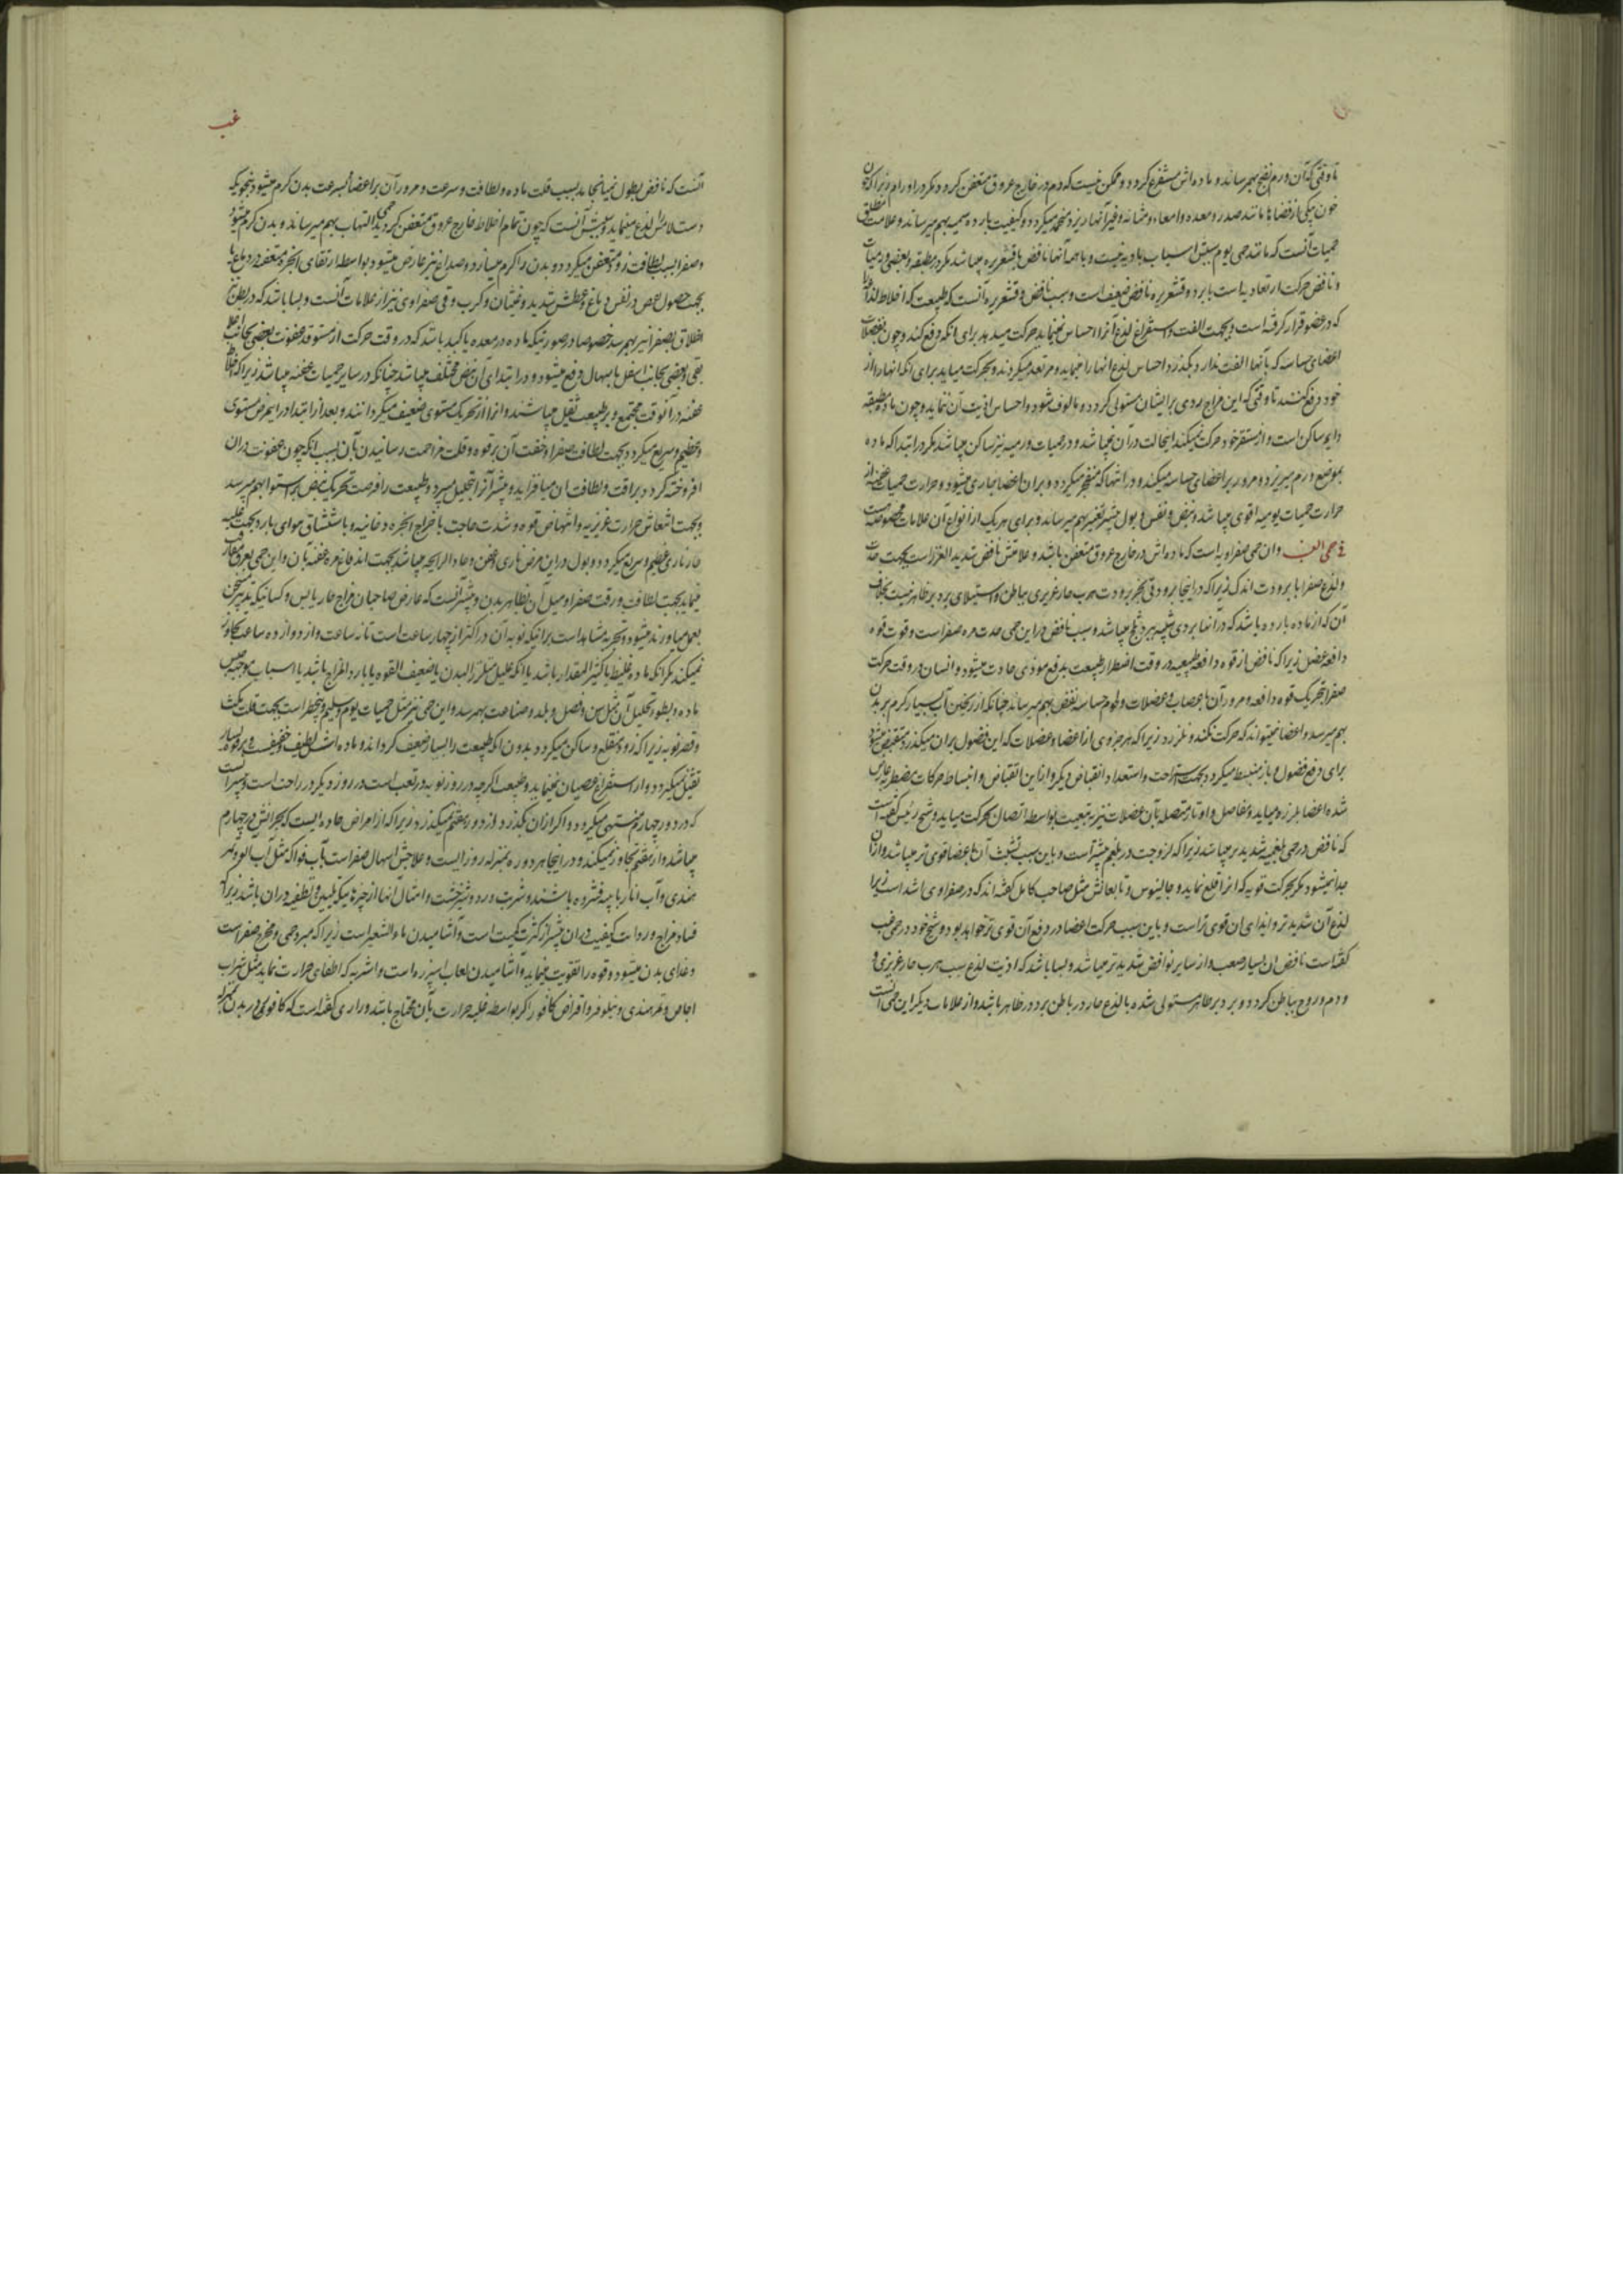 تا وقتی که آن ورم نضج بهم رساند و ماده‌اش مستفرغ گردد و ممکن نیست که دم در خارج عروق متعفن گردد مگر در اورام زیرا که چون
خون بیکی از فضاها مانند صدر و معده و امعاء و مثانه و غیر آنها ریزد منجمد میگردد و کیفیت بارده سمیه بهم میرساند و علامت مطلق
حمیات آنست که مانند حمی یوم سببش اسباب بادیه نیست و با همه آنها نافض یا قشعریره میباشد مگر در مطبقه و بعضی ورمیات
و نافض حرکت ارتعادیه است با برد و قشعریره نافض ضعیف است و سبب نافض و قشعریره آنست که طبیعت که اخلاط لذاعه
که در عضو قرار گرفته است و بجهت الفت و استفراغ لذع آنرا احساس نمینماید حرکت میدهد برای آنکه دفع کند و چون بعضلات
اعضای حساسه که بآنها الفت ندارد بگذرد احساس لذع آنها را مینماید و مرتعد میگردند و بحرکت میاید برای آنکه آنها را از
خود دفع کنند تا وقتی که این مزاج ردی بر ایشان مستولی گردد و مالوف شود و احساس اذیت آن ننماید و چون ماده مطبقه
دایم ساکن است و از مستقر خود حرکت نمیکند اینحالت در آن نمیباشد و در حمیات ورمیه نیز ساکن میباشد مگر در ابتدا که ماده
بموضع ورم میریزد و مرور بر اعضای حساسه میکند و در انتها که منفجر میگردد و بر آن اعضا جاری میشود و حرارت حمیات عفنه از
حرارت حمیات یومیه اقوی میباشد و نبض و نفس و بول بیشتر تغیر بهم میرساند و برای هر یک از انواع آن علامات مخصوصه است
فی حمی الغب وان حمی صفراویه است که ماده‌اش در خارج عروق متعفن باشد و علامتش نافض شدید الغرز است بجهت حدت
و لذع صفرا با برودت اندک زیرا که در اینجا برودتی بجز برودت هرب حار غریزی بباطن و استیلای برد بر ظاهر نیست بخلاف
آن که از ماده بارده باشد که در آنها بردی شبیه ببرد ثلج میباشد و سبب نافض در این حمی حدت مره صفرا است و قوت قوه
دافعه عضل زیرا که نافض از قوه دافعه طبیعیه در وقت اضطرار طبیعت بدفع موذی حادث میشود و انسان در وقت حرکت
صفرا بتحریک قوه دافعه و مرور آن باعصاب و عضلات و لحوم حساسه نفض بهم میرساند چنانکه از ریختن آب بسیار گرم بر بدن
بهم میرسد و اعضا نمیتواند که حرکت نکند و نلرزد زیرا که هر جزوی از اعضا و عضلات که این فضول بر آن میگذرد منقبض میشود
برای دفع فضول و باز منبسط میگردد بجهت استراحت و استعداد انقباض دیگر و از این انقباض و انبساط حرکات مضطربه عارض
شده اعضا بلرزه میاید و مفاصل و اوتار متصله بآن عضلات نیز بتبعیت بواسطه اتصال بحرکت میاید و شیخ رئیس گفته است
که نافض در حمی بلغمیه شدیدتر میباشد زیرا که لزوجت در بلغم بیشتر است و باین سبب تشبث آن باعضا قوی‌تر میباشد و از آن
جدا نمیشود مگر بحرکت قویه که انرا قلع نماید و جالینوس و تابعانش مثل صاحب کامل گفته‌اند که در صفراوی اشد است زیرا
لذع آن شدیدتر و ایذای آن قوی‌تر است و باین سبب حرکت اعضا در دفع آن قوی‌تر خواهد بود و شیخ خود در حمی غب
گفته است نافض ان بسیار صعب و از سایر نوافض شدیدتر میباشد و بسا باشد که اذیت لذع سبب هرب حار غریزی و
و دم و روح بباطن گردد و برد بر ظاهر مستولی شده با لذع حار در باطن برد در ظاهر باشد و از علامات دیگر این حمی آنست
غب
آنست که نافض بطول نمیانجامد بسبب قلت ماده و لطافت و سرعت و مرور آن بر اعضا بسرعت بدن گرم میشود بنحویکه
دست لامس را لذع مینماید و سببش آنست که چون تمام اخلاط خارج عروق متعفن گردید التهاب بهم میرساند و بدن گرم میشود
و صفرا بسبب لطافت زود متعفن میگردد و بدن را گرم میسازد و صداع نیز عارض میشود بواسطه ارتقای ابخره متعفنه در دماغ یا
بجهت حصول حمی در نفس دماغ و عطش شدید و غثیان و کرب و قی صفراوی نیز از علامات آنست و بسا باشد که در بطن نیز
اطلاق بصفرا نیز بهم رسد خصوصا در صورتیکه ماده در معده یا کبد باشد که در وقت حرکت از مستوقد عفونت بعضی بجانب اعلا
بقی و بعضی بجانب اسفل باسهال دفع میشود و در ابتدای آن نبض مختلف میباشد چنانکه در سایر حمیات عفنه میباشد زیرا که اخلاط
عفنه در آنوقت مجتمع و بر طبیعت ثقیل میباشند و انرا از تحریک مستوی ضعیف میگردانند و بعد از ابتدا در اینمرض مستوی
و عظیم و سریع میگردد بجهت لطافت صفرا و خفت آن بر قوه و قلت مزاحمت رسانیدن بآن بسبب آنکه چون عفونت در آن
افروخته گردد بر رقت و لطافت ان میافزاید و بیشتر آنرا بتحلیل میبرد و طبیعت را فرصت تحریک نبض بر استوا بهم میرسد
و بجهت اشتعال حرارت غریزیه و انتهاض قوه و شدت حاجت باخراج ابخره دخانیه و باستنشاق هوای بارد بجهت غلبه
حار ناری عظیم و سریع میگردد و بول در این مرض ناری و حسن و حاد الرایحه میباشد بجهت اندفاع مره عفنه بآن و این حمی بعرق مفارقت
مینماید بجهت لطافت و رقت صفرا و میل آن بظاهر بدن و بیشتر آنست که عارض صاحبان مزاج حار یابس و کسانیکه تدبیر مسخن
بعمل میاورند میشود و بتجربه مشاهد است بر اینکه نوبه آن در اکثر از چهار ساعت است تا نه ساعت و از دوازده ساعت تجاوز
نمیکند مگر آنکه ماده غلیظ یا کثیر المقدار باشد یا آنکه علیل متلزز البدن یا ضعیف القوه یا بارد المزاج باشد یا اسباب موجبه
ماده و بطوء تحلیل آن مثل سن و فصل و بلد و صناعت بهم رسد و این حمی نیز مثل حمیات یوم و سلیم و بیخطر است بجهت قلت مکث
و قصر نوبه زیرا که زود منقلع و ساکن میگردد بدون آنکه طبیعت را بسیار ضعیف گرداند و ماده‌اش لطیف و خفیف و بر قوه بسیار
ثقیل نمیگردد و از استفراغ عصیان نمینماید و طبیعت اگرچه در روز نوبه در تعب است در روز دیگر در راحت است و بیشتر آنست
که در دور چهارم منتهی میگردد و اگر از آن بگذرد از دور هفتم نمیگذرد زیرا که از امراض حاده ایست که بحرانش در چهارم
میباشد و از هفتم تجاوز نمیکند و در اینجا هر دوره بمنزله روزیست و علاجش اسهال صفرا است بآب فواکه مثل آب آلو و تمر
هندی و آب انار با پیه فشرده باشند و شربت ورد و شیرخشت و امثال آنها از چیزهائیکه تلیین و تلطیفه در آن باشد زیرا که
فساد مزاج و ردائت کیفیت در آن بیشتر از کثرت کمیت است و آشامیدن ماء الشعیر است زیرا که مبرد حمی و مخرج صفرا است
و غذای بدن میشود و قوه را تقویت مینماید و آشامیدن لعاب اسپرزه است و اشربه که اطفای حرارت نماید مثل شراب
اجاص و تمرهندی و نیلوفر و اقراص کافور اگر بواسطه غلبه حرارت بآن محتاج باشد و رازی گفته است که کافور در بدن